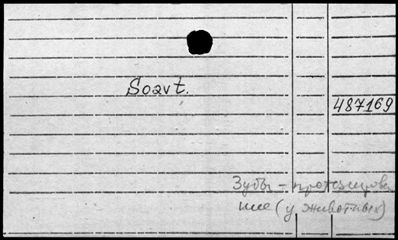 Soavt.
487169
Зубы - протезирова
ние (у животных)